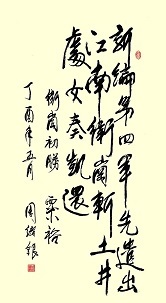 新编第四军先遣出
江南卫岗斩土井
处女奏凯还
卫岗初胜 粟裕
丁酉年五月 周线银